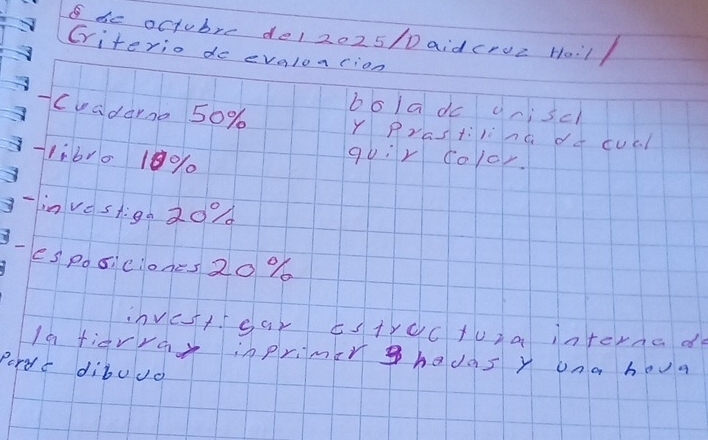 8 de octubre del 2025/Daidcruz Hail/
Criterio de evaluacion
-Cuaderno 50%
-libro 10%
-investiga 20%
-esposiciones 20%
bola de unisel
y prastilina de cual
quir color.
investigar estructura interna de
la tierra y inprimir 3 hojas y una hoja
Parde dibujo